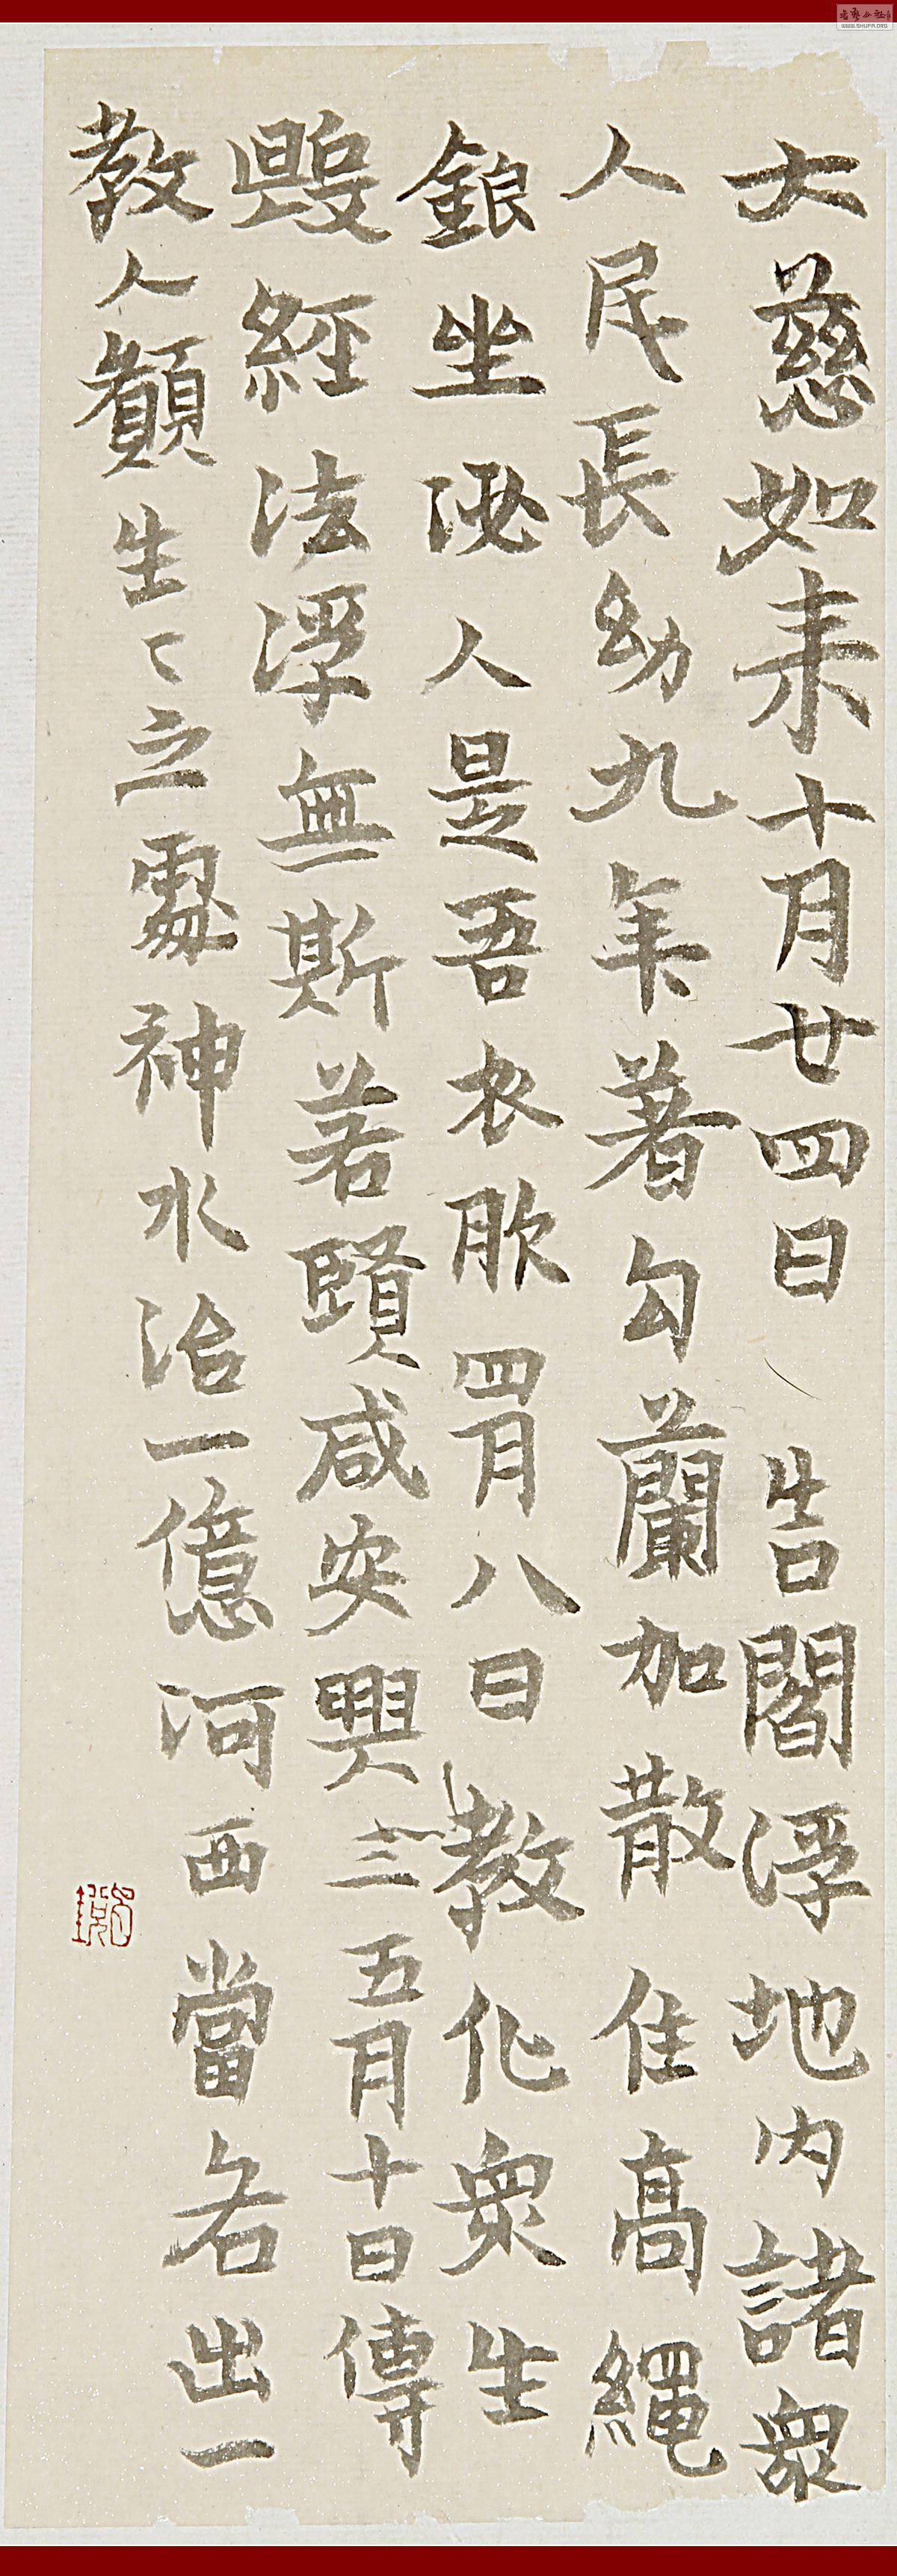 大慈如来十月廿四日告閻浮地内諸衆
人民長幼九年著勾蘭加散住高繩
銀坐泌人是吾衣肷四月八日教化衆生
經法浮無斯若賢咸安興三五月十日傳
教人願生〻之處神水治一億河西當名出一
WWW.SHUFA.ORG